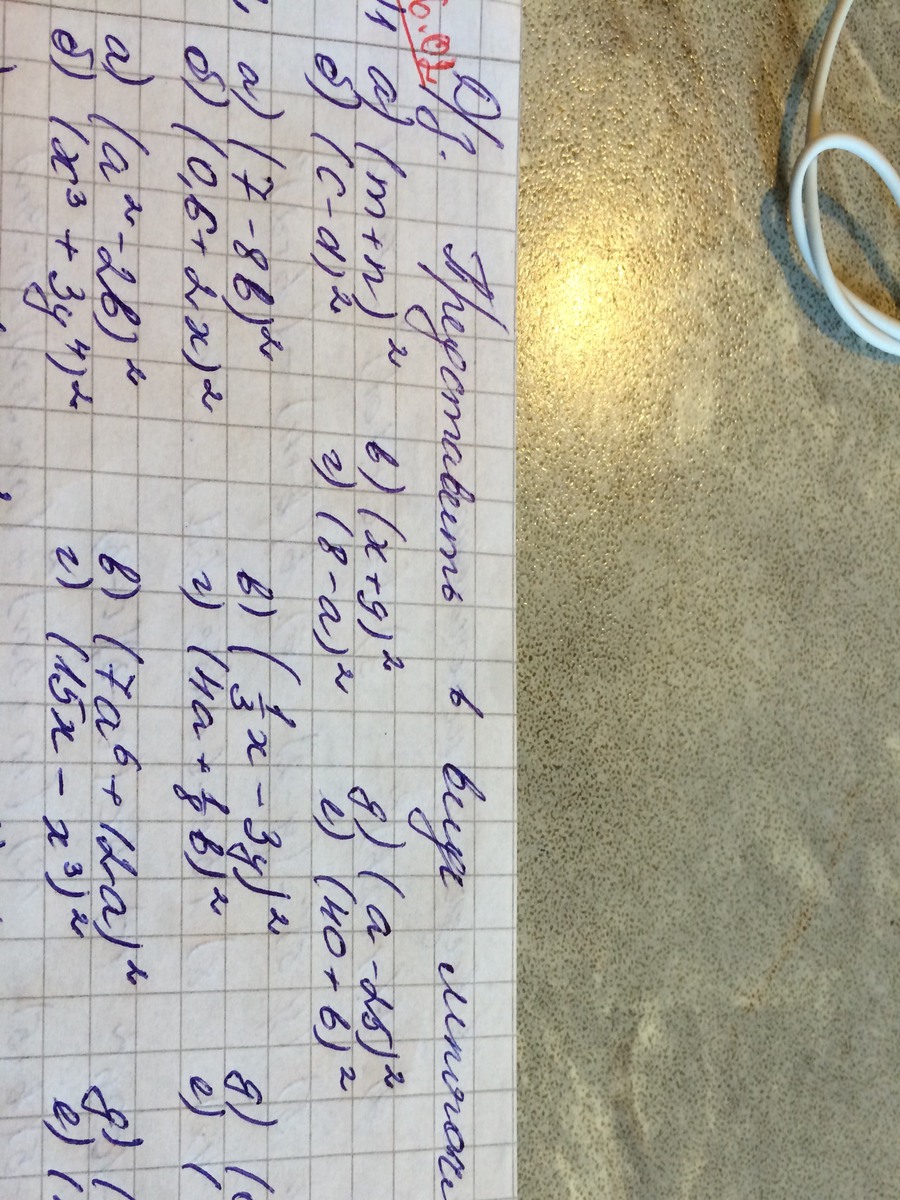 Д/з. Представить в виде многоч
а) (m+n)² в) (x+9)² д) (a-25)²
б) (c-d)² г) (8-a)² е) (40+b)²
а) (7-8b)² в) (1/3x-3y)² д) (
б) (0,6+2x)² г) (4a+1/8b)² е) (
а) (a²-2b)² в) (7a⁶+12a)² д) (
б) (x³+3y⁴)² г) (15x-x³)² е) (